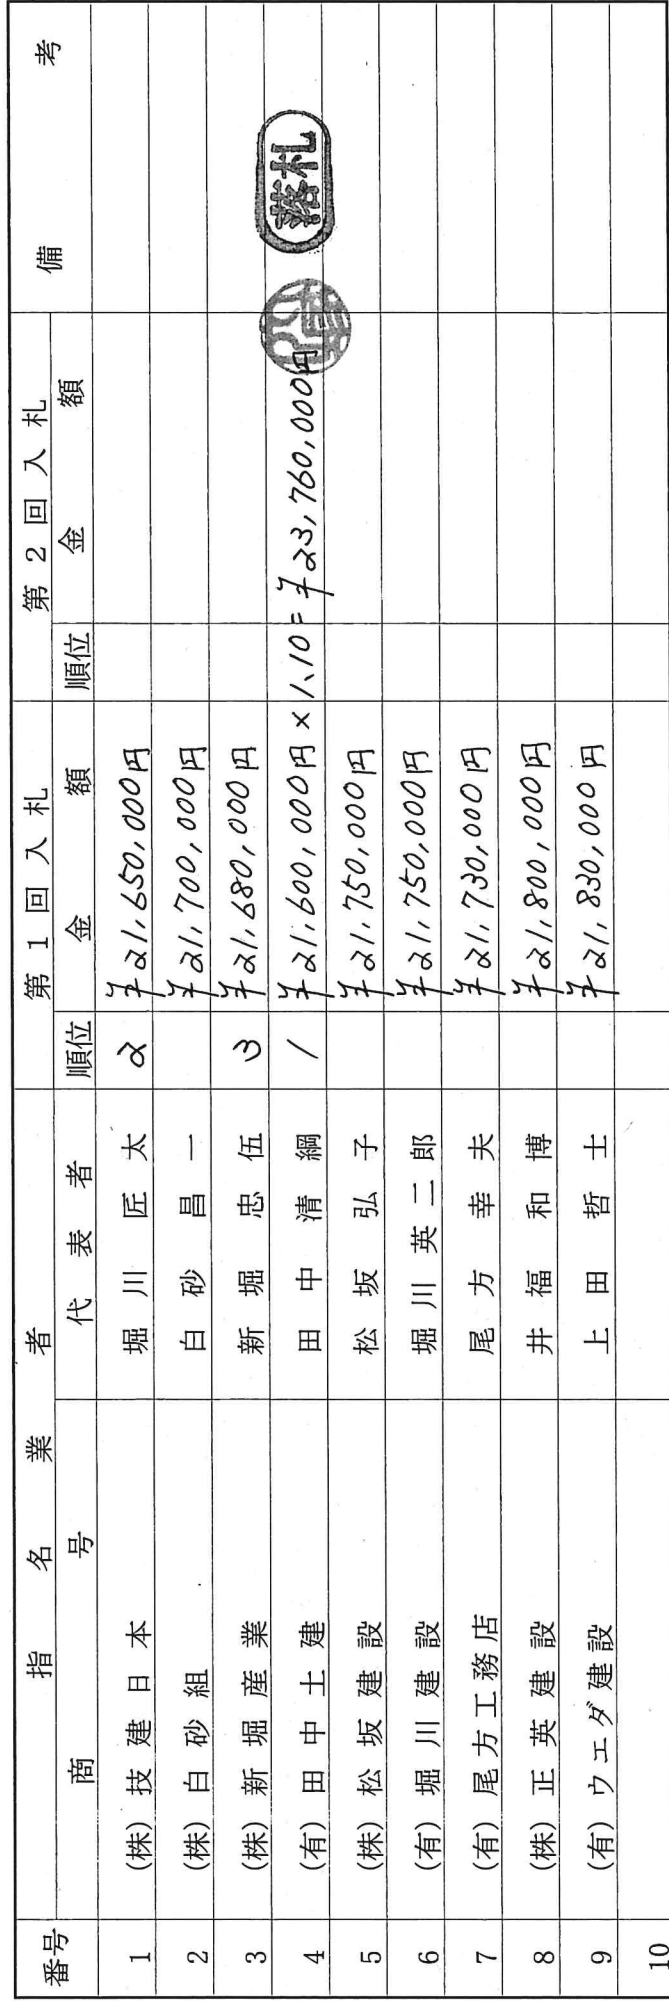 番号 指名業者 第1回入札 第2回入札 備考
商号 代表者 順位 金額 順位 金額
1 (株) 技建日本 堀川匠太 2 ¥21,650,000円
2 (株) 白砂組 白砂昌一 ¥21,700,000円
3 (株) 新堀産業 新堀忠伍 3 ¥21,680,000円
4 (有) 田中土建 田中清綱 1 ¥21,600,000円 × 1.10 = ¥23,760,000円 落札
5 (株) 松坂建設 松坂弘子 ¥21,750,000円
6 (有) 堀川建設 堀川英二郎 ¥21,750,000円
7 (有) 尾方工務店 尾方幸夫 ¥21,730,000円
8 (株) 正英建設 井福和博 ¥21,800,000円
9 (有) ウエダ建設 上田哲士 ¥21,830,000円
10